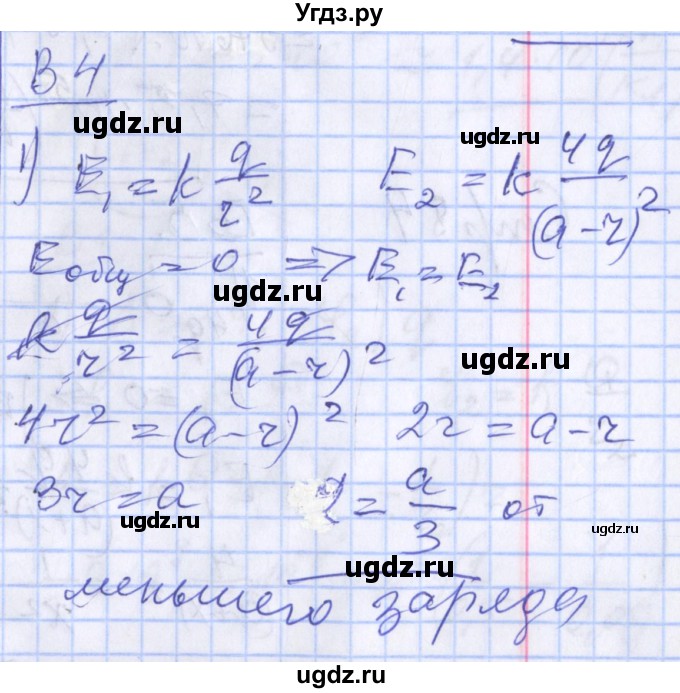 Угдз.ру
В 4
ugdz.ru
ugdz.ru
1) E₁ = k q/r² E₂ = k 4q/(a-r)²
Eобщ = 0 => E₁ = E₂
ugdz.ru
k q/r² = 4q/(a-r)²
ugdz.ru
4r² = (a-r)² 2r = a-r
3r = a r = a/3 от
ugdz.ru
ugdz.ru
ugdz.ru
меньшего заряда
ugdz.ru